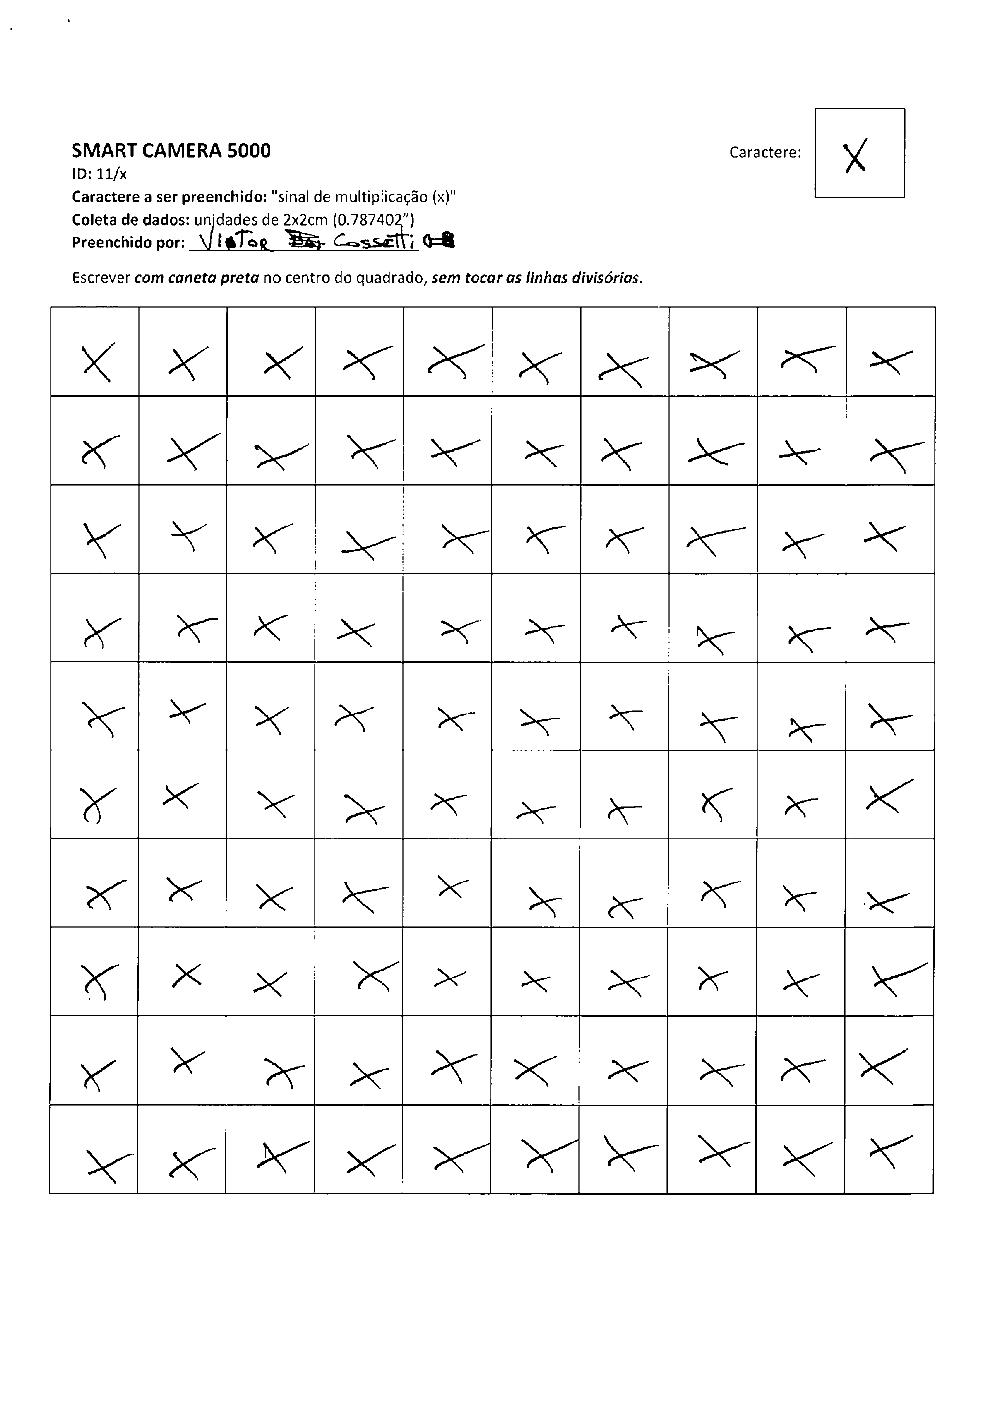 SMART CAMERA 5000
Caractere: X
ID: 11/x
Caractere a ser preenchido: "sinal de multiplicação (x)"
Coleta de dados: unidades de 2x2cm (0.787402")
Preenchido por: Victor Cossetti
Escrever com caneta preta no centro do quadrado, sem tocar as linhas divisórias.
X X X X X X X X X X
X X X X X X X X X X
X X X X X X X X X X
X X X X X X X X X X
X X X X X X X X X X
X X X X X X X X X X
X X X X X X X X X X
X X X X X X X X X X
X X X X X X X X X X
X X X X X X X X X X